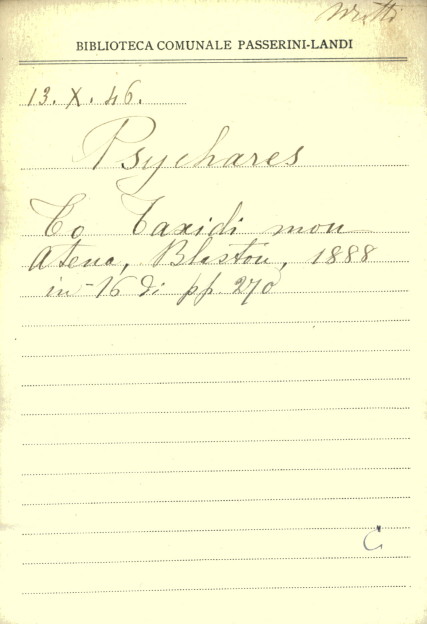 BIBLIOTECA COMUNALE PASSERINI-LANDI
13. X. 46.
Psychares
To Taxidi mou
Atene, Blastòu, 1888
in-16 di pp. 270
C